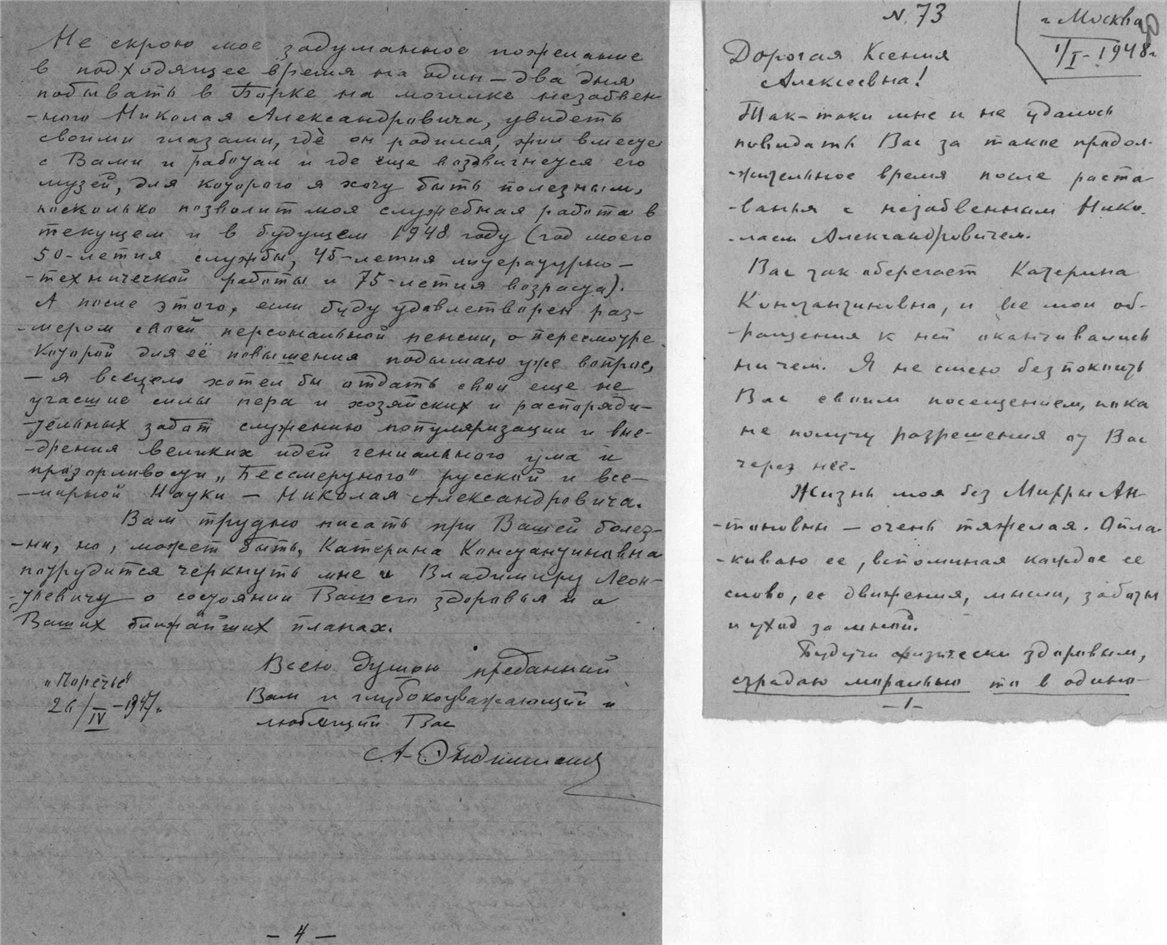 Не скрою мое задуманное пожелание
в подходящее время на один – два дня
побывать в Борке на могилке незабвен-
-ного Николая Александровича, увидеть
своими глазами, где он родился, жил вместе
с Вами и работал и где еще воздвигнется его
музей, для которого я хочу быть полезным,
насколько позволит моя служебная работа в
текущем и в будущем 1948 году (год моего
50-летия службы, 45-летия литературно-
-технической работы и 75-летия возраста).
А после этого, если буду удовлетворен раз-
-мером своей персональной пенсии, о пересмотре
которой для её повышения подымаю уже вопрос,
– я всецело хотел бы отдать свои еще не
угасшие силы пера и хозяйских и распоряди-
-тельных забот служению популяризации и вне-
-дрения великих идей гениального ума и
прозорливости „Бессмертного" русской и все-
-мирной Науки – Николая Александровича.
Вам трудно писать при Вашей болез-
-ни, но, может быть, Катерина Константиновна
потрудится черкнуть мне и Владимиру Леон-
-тьевичу о состоянии Вашего здоровья и о
Ваших ближайших планах.
Всею душою преданный
Вам и глубокоуважающий и
любящий Вас
„Поречье"
26/IV – 1947г.
– 4 –
N. 73
г Москва
1/I – 1948г
Дорогая Ксения
Алексеевна!
Так-таки мне и не удалось
повидать Вас за такое продол-
-жительное время после раста-
-ванья с незабвенным Нико-
-лаем Александровичем.
Вас так оберегает Катерина
Константиновна, и все мои об-
-ращения к ней оканчивались
ничем. Я не смею безпокоить
Вас своим посещением, пока
не получу разрешения от Вас
через нее.
Жизнь моя без Марфы Ан-
-тоновны – очень тяжелая. Опла-
-киваю ее, вспоминая каждое ее
слово, ее движения, мысли, заботы
и уход за мной.
Будучи физически здоровым,
страдаю морально то в одино-
– 1 –